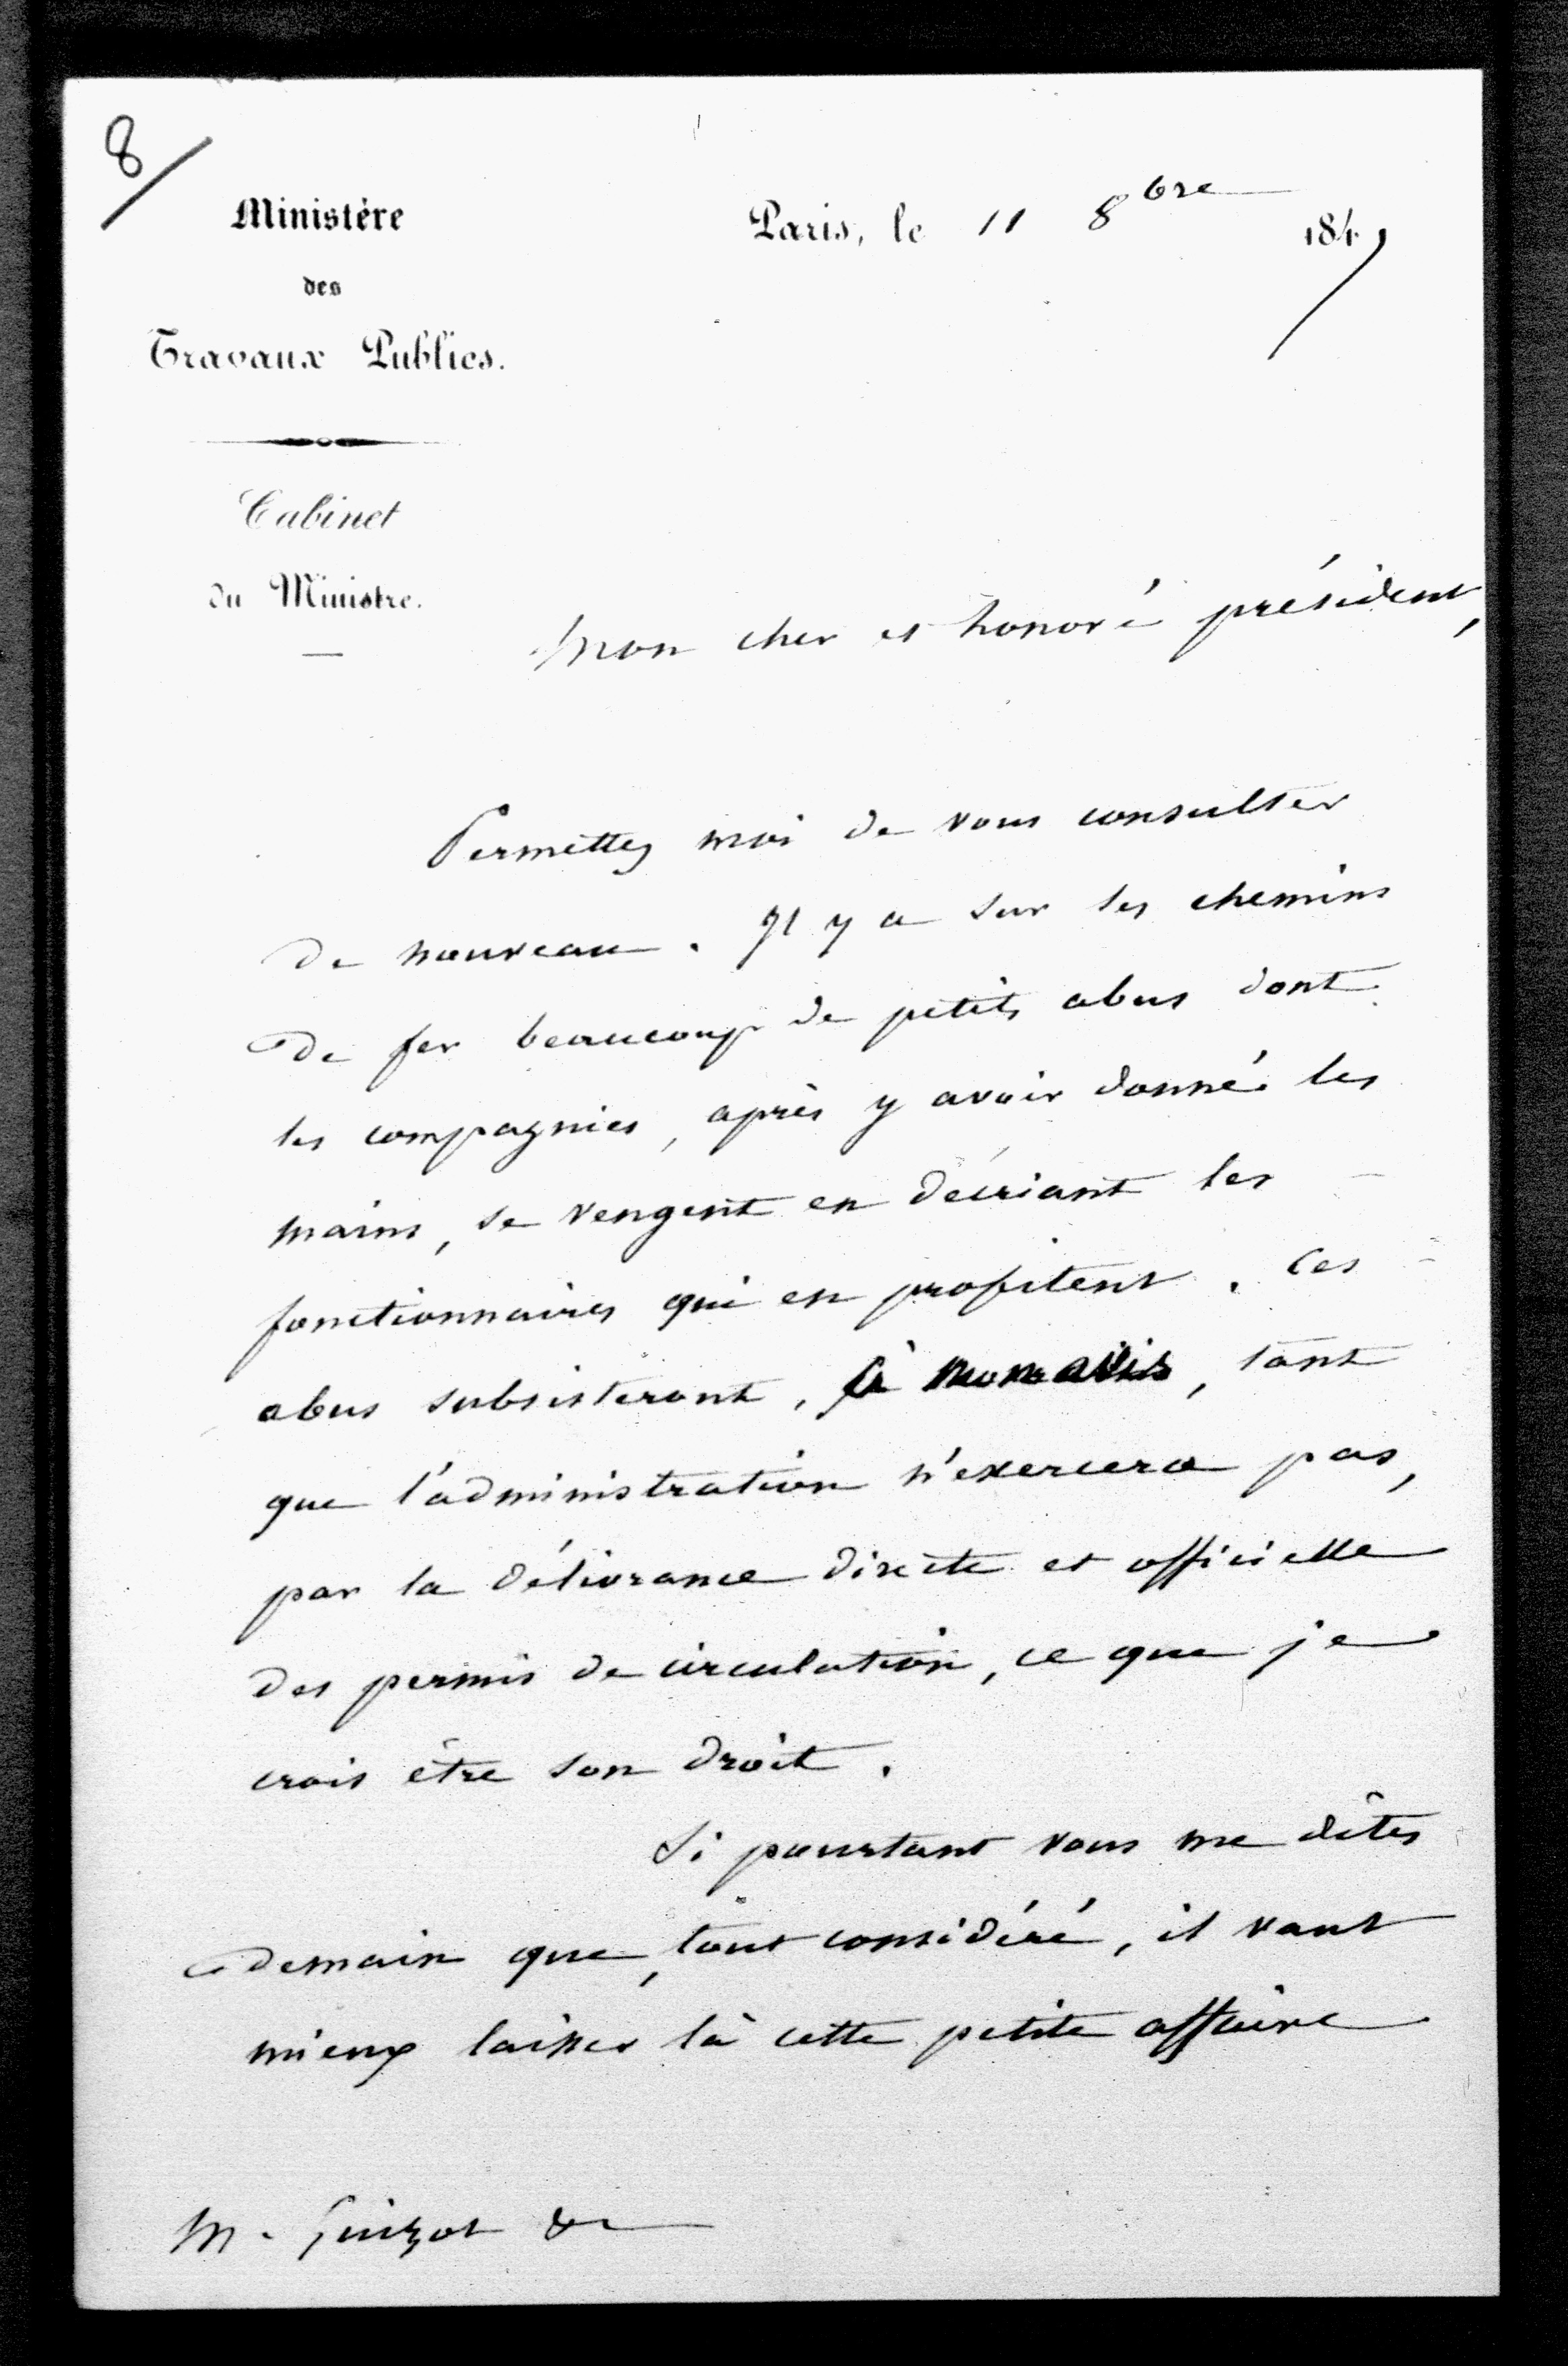 8/
Ministère
des
Travaux Publics.
Cabinet
du Ministre.
Paris, le 11 8bre 1847
Mon cher et honoré président,
Permettez moi de vous consulter
de nouveau. Il y a sur les chemins
de fer beaucoup de petits abus dont
les compagnies, après y avoir donné les
mains, se vengent en décriant les
fonctionnaires qui en profitent. Ces
abus subsisteront, à mon avis, tant
que l'administration n'exercera pas,
par la délivrance directe et officielle
des permis de circulation, ce que je
crois être son droit.
Si pourtant vous me dites
demain que, tout considéré, il vaut
mieux laisser là cette petite affaire
M. Guizot &c